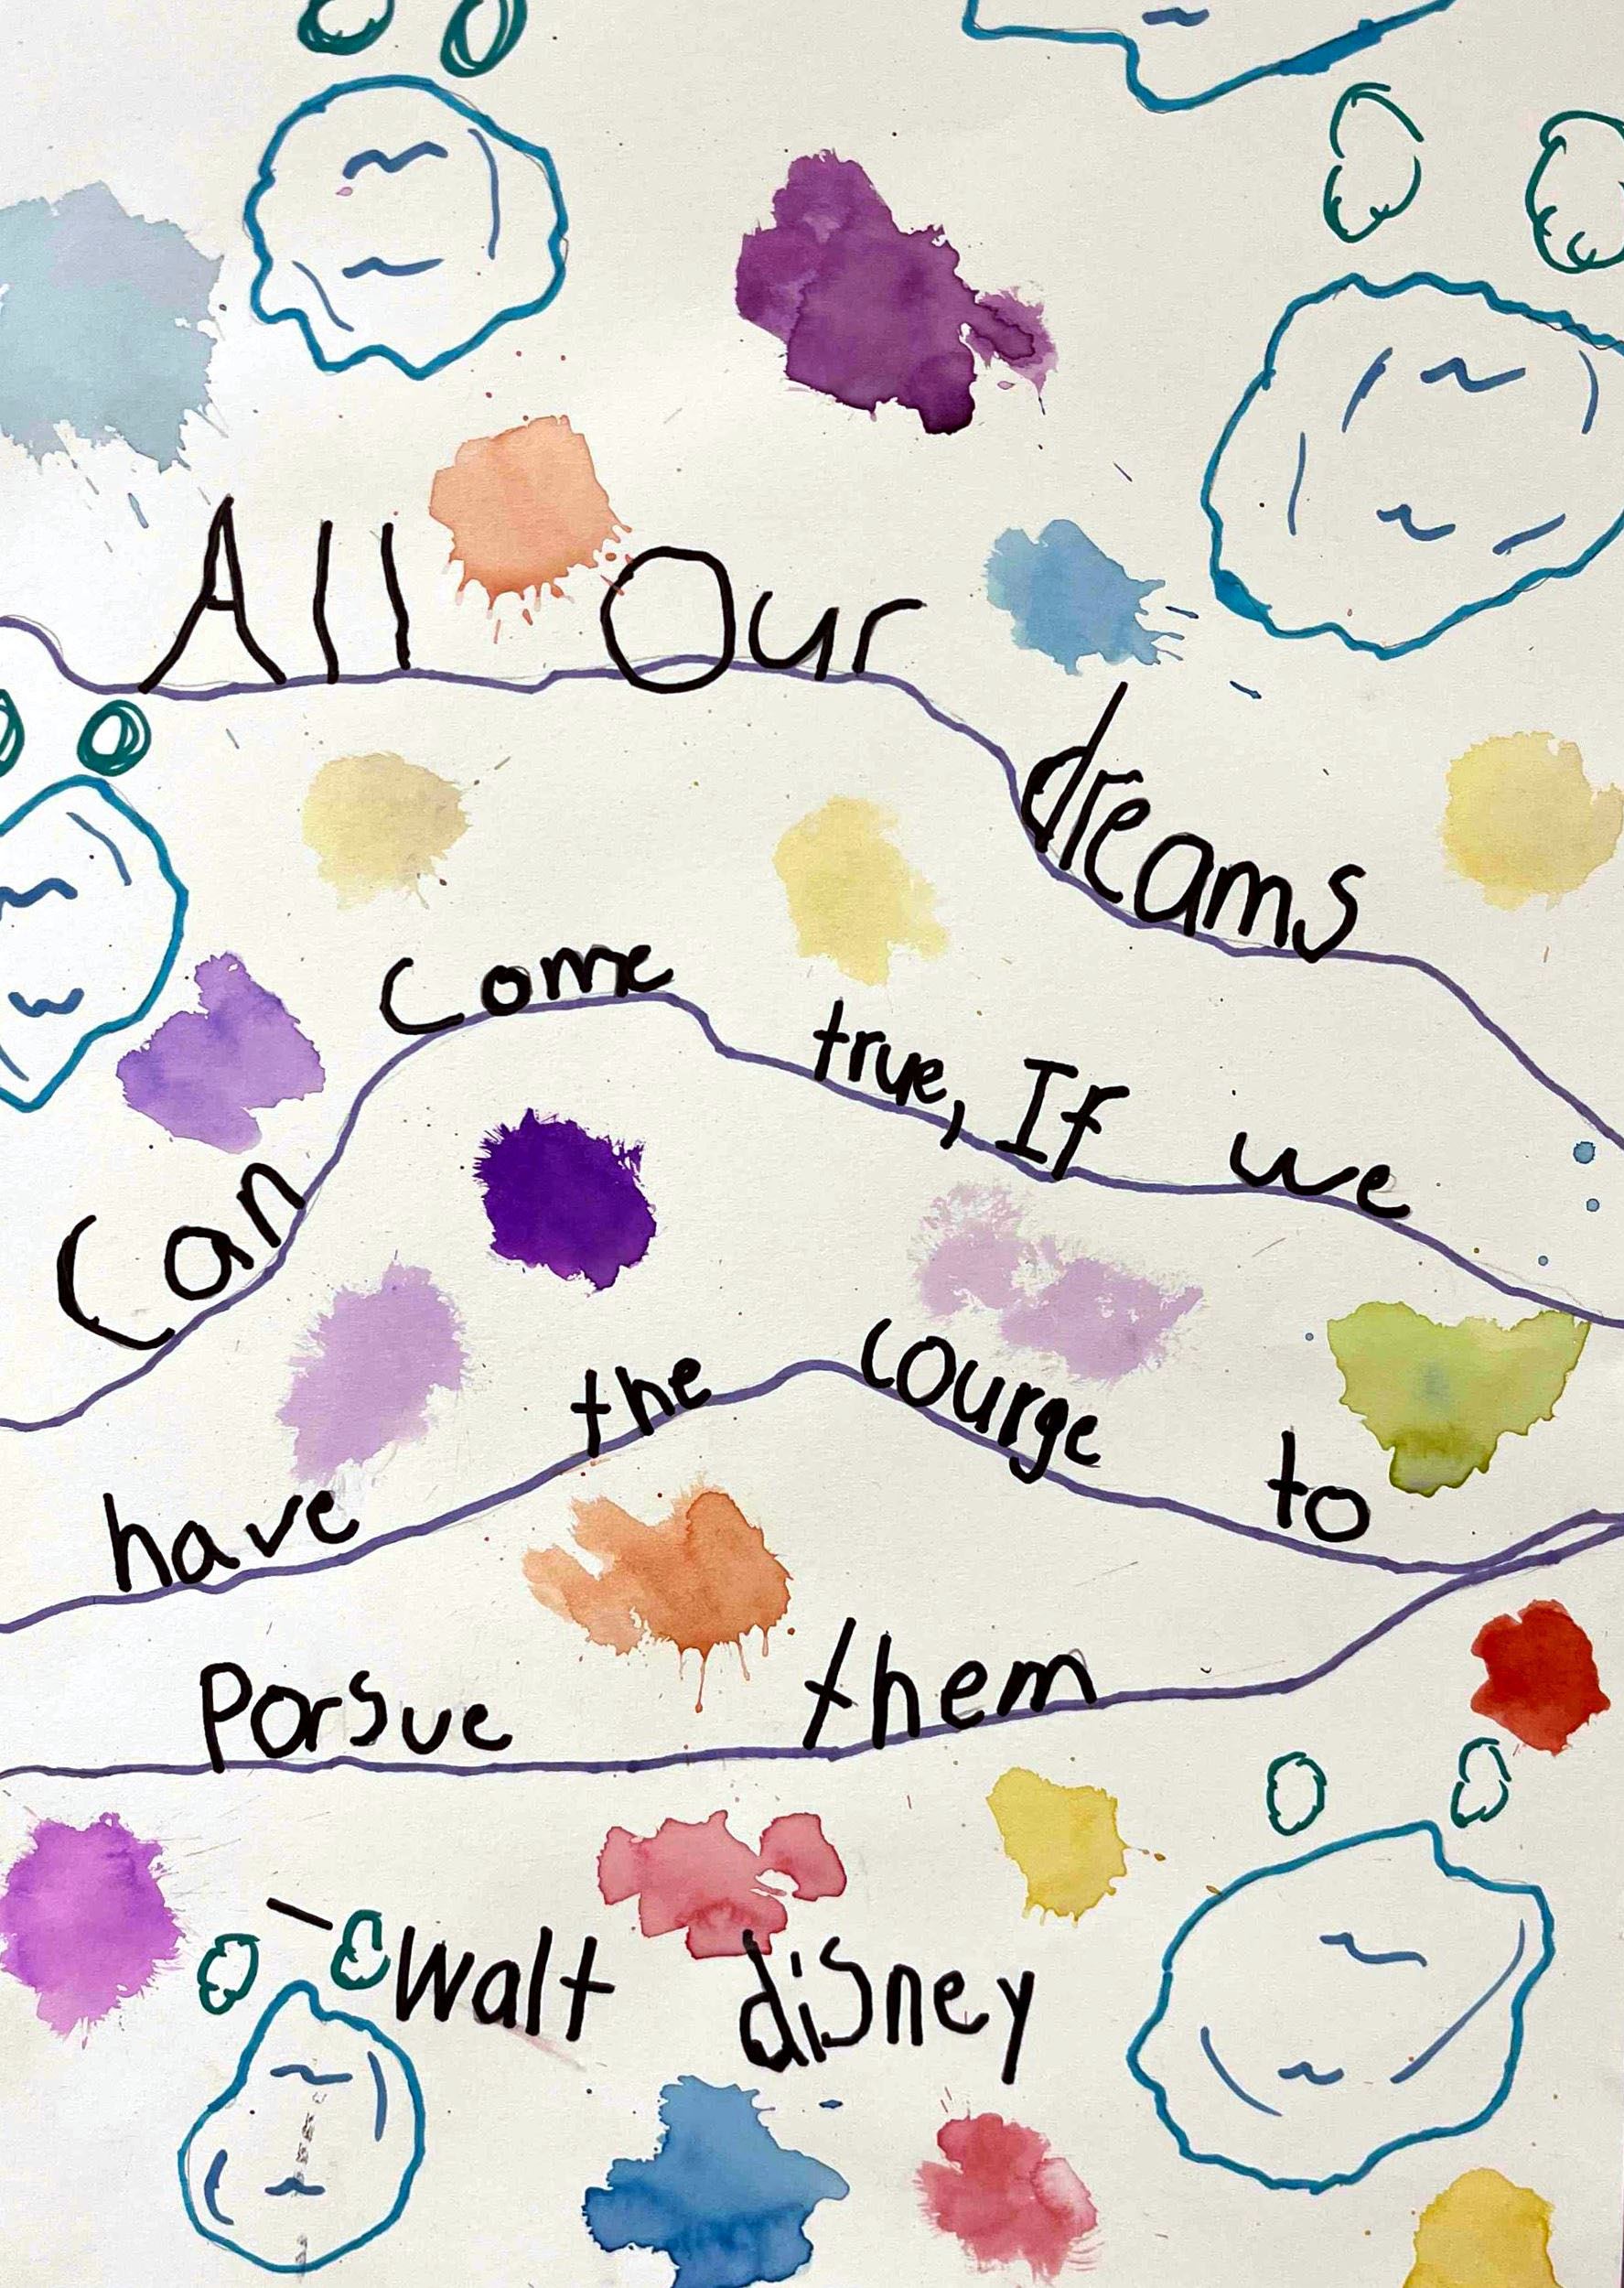 All Our dreams
Can Come true, If we
have the courge to
Porsue them
- walt disney